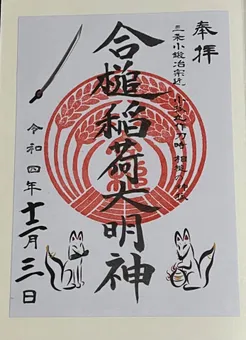 奉拝
三条小鍛冶宗近
合槌稲荷大明神
令和四年十二月三日